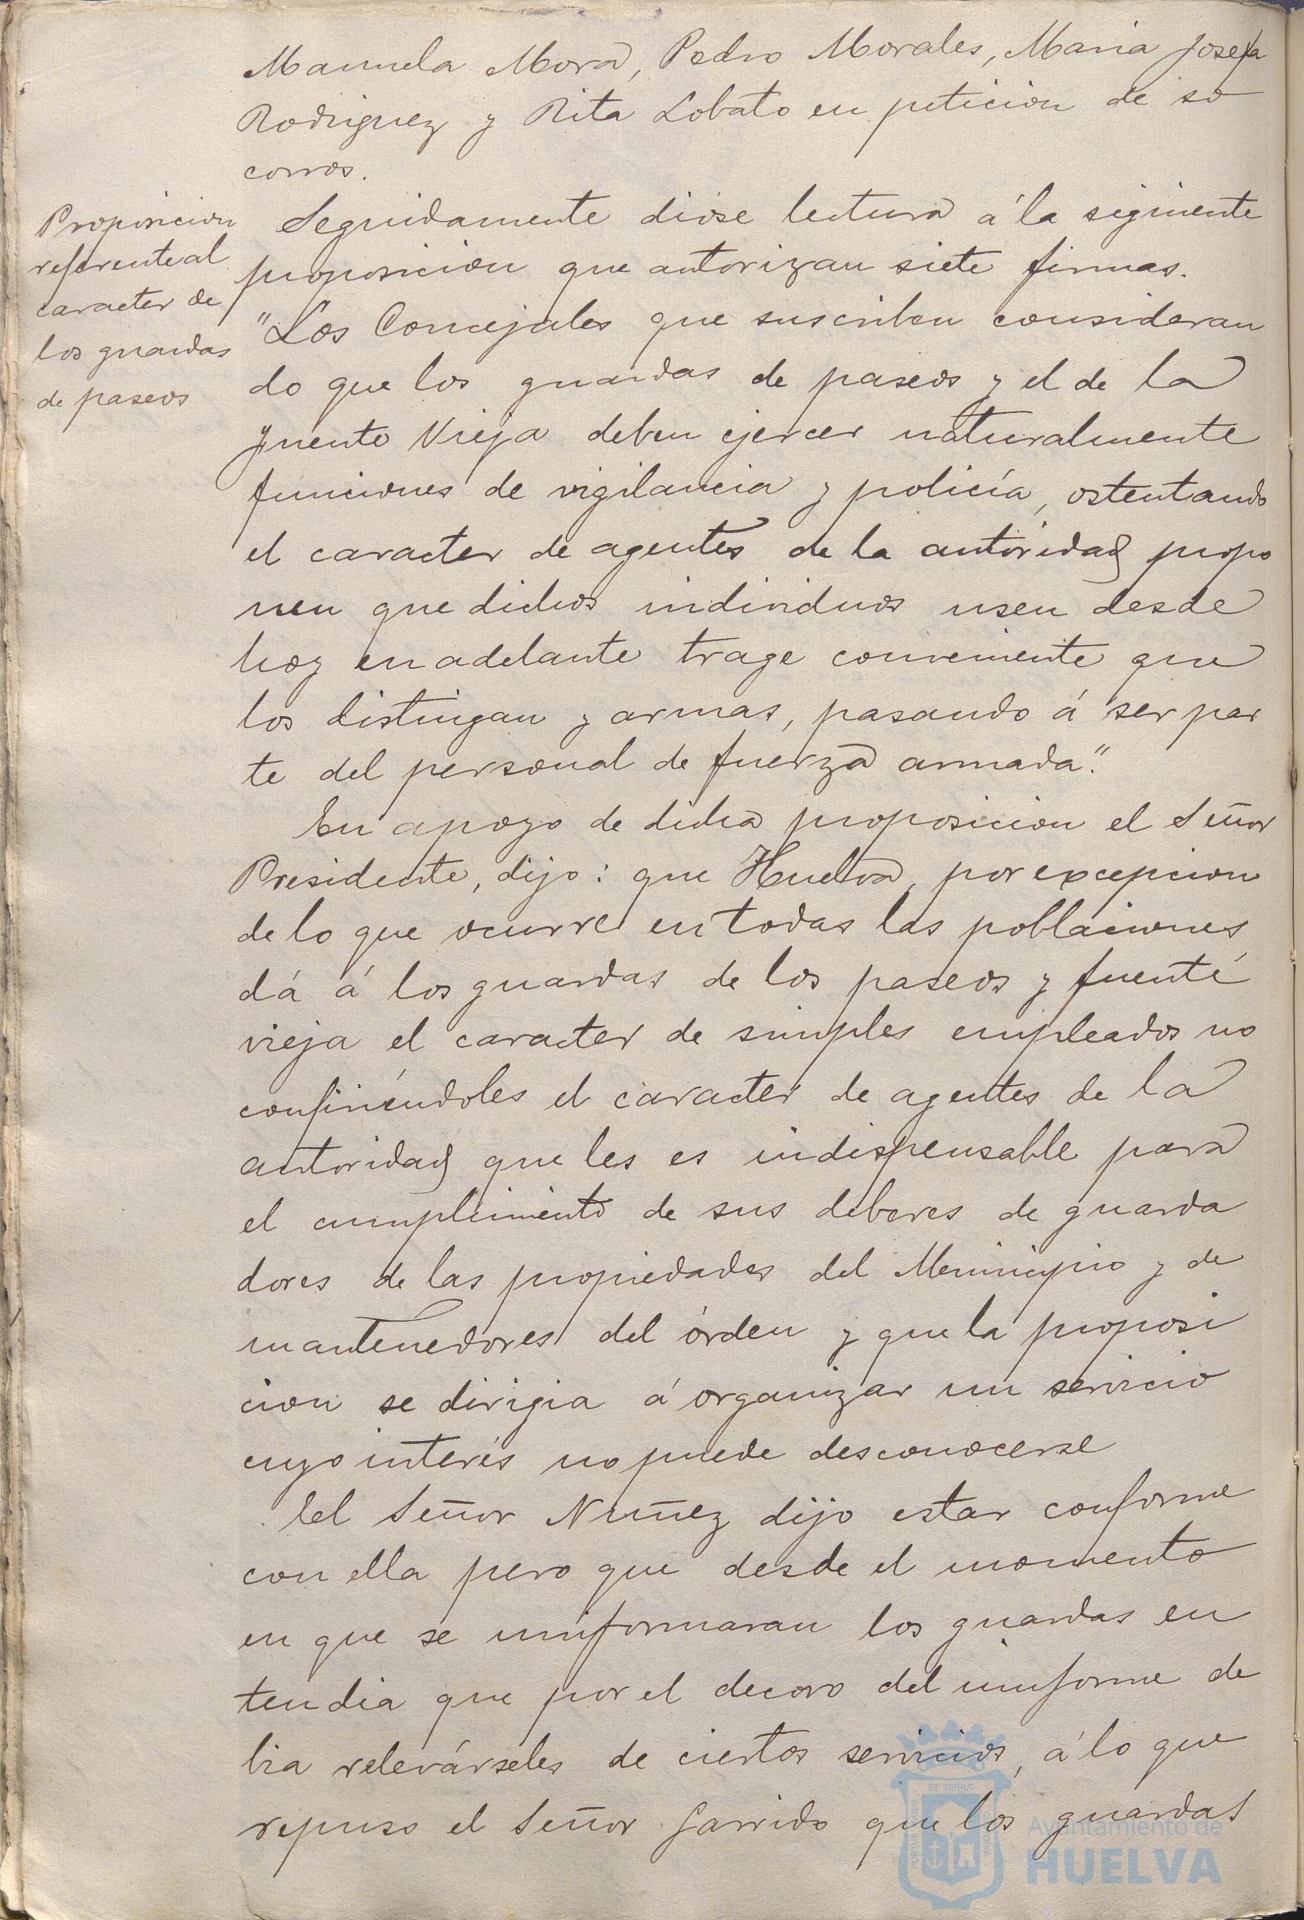 Manuela Mora, Pedro Morales, Maria Josefa
Rodriguez y Rita Lobato en peticion de so
corros.
Proposicion
referente al
caracter de
los guardas
de paseos
Seguidamente dióse lectura á la siguiente
proposicion que autorizan siete firmas.
"Los Concejales que suscriben consideran
do que los guardas de paseos y el de la
fuente Vieja deben ejercer naturalmente
funciones de vigilancia y policía, ostentando
el caracter de agentes de la autoridad propo
nen que dichos individuos usen desde
hoy en adelante trage conveniente que
los distingan y armas, pasando á ser par
te del personal de fuerza armada".
En apoyo de dicha proposicion el Señor
Presidente, dijo: que Huelva, por excepcion
de lo que ocurre en todas las poblaciones
dá á los guardas de los paseos y fuente
vieja el caracter de simples empleados no
confiriéndoles el caracter de agentes de la
autoridad que les es indispensable para
el cumplimiento de sus deberes de guarda
dores de las propiedades del Municipio y de
mantenedores del órden y que la proposi
cion se dirigia á organizar un servicio
cuyo interés no puede desconocerse
El Señor Nuñez dijo estar conforme
con ella pero que desde el momento
en que se uniformaran los guardas en
tendia que por el decoro del uniforme de
bia relevárseles de ciertos servicios, á lo que
repuso el Señor Garrido que los guardas
Ayuntamiento de
HUELVA